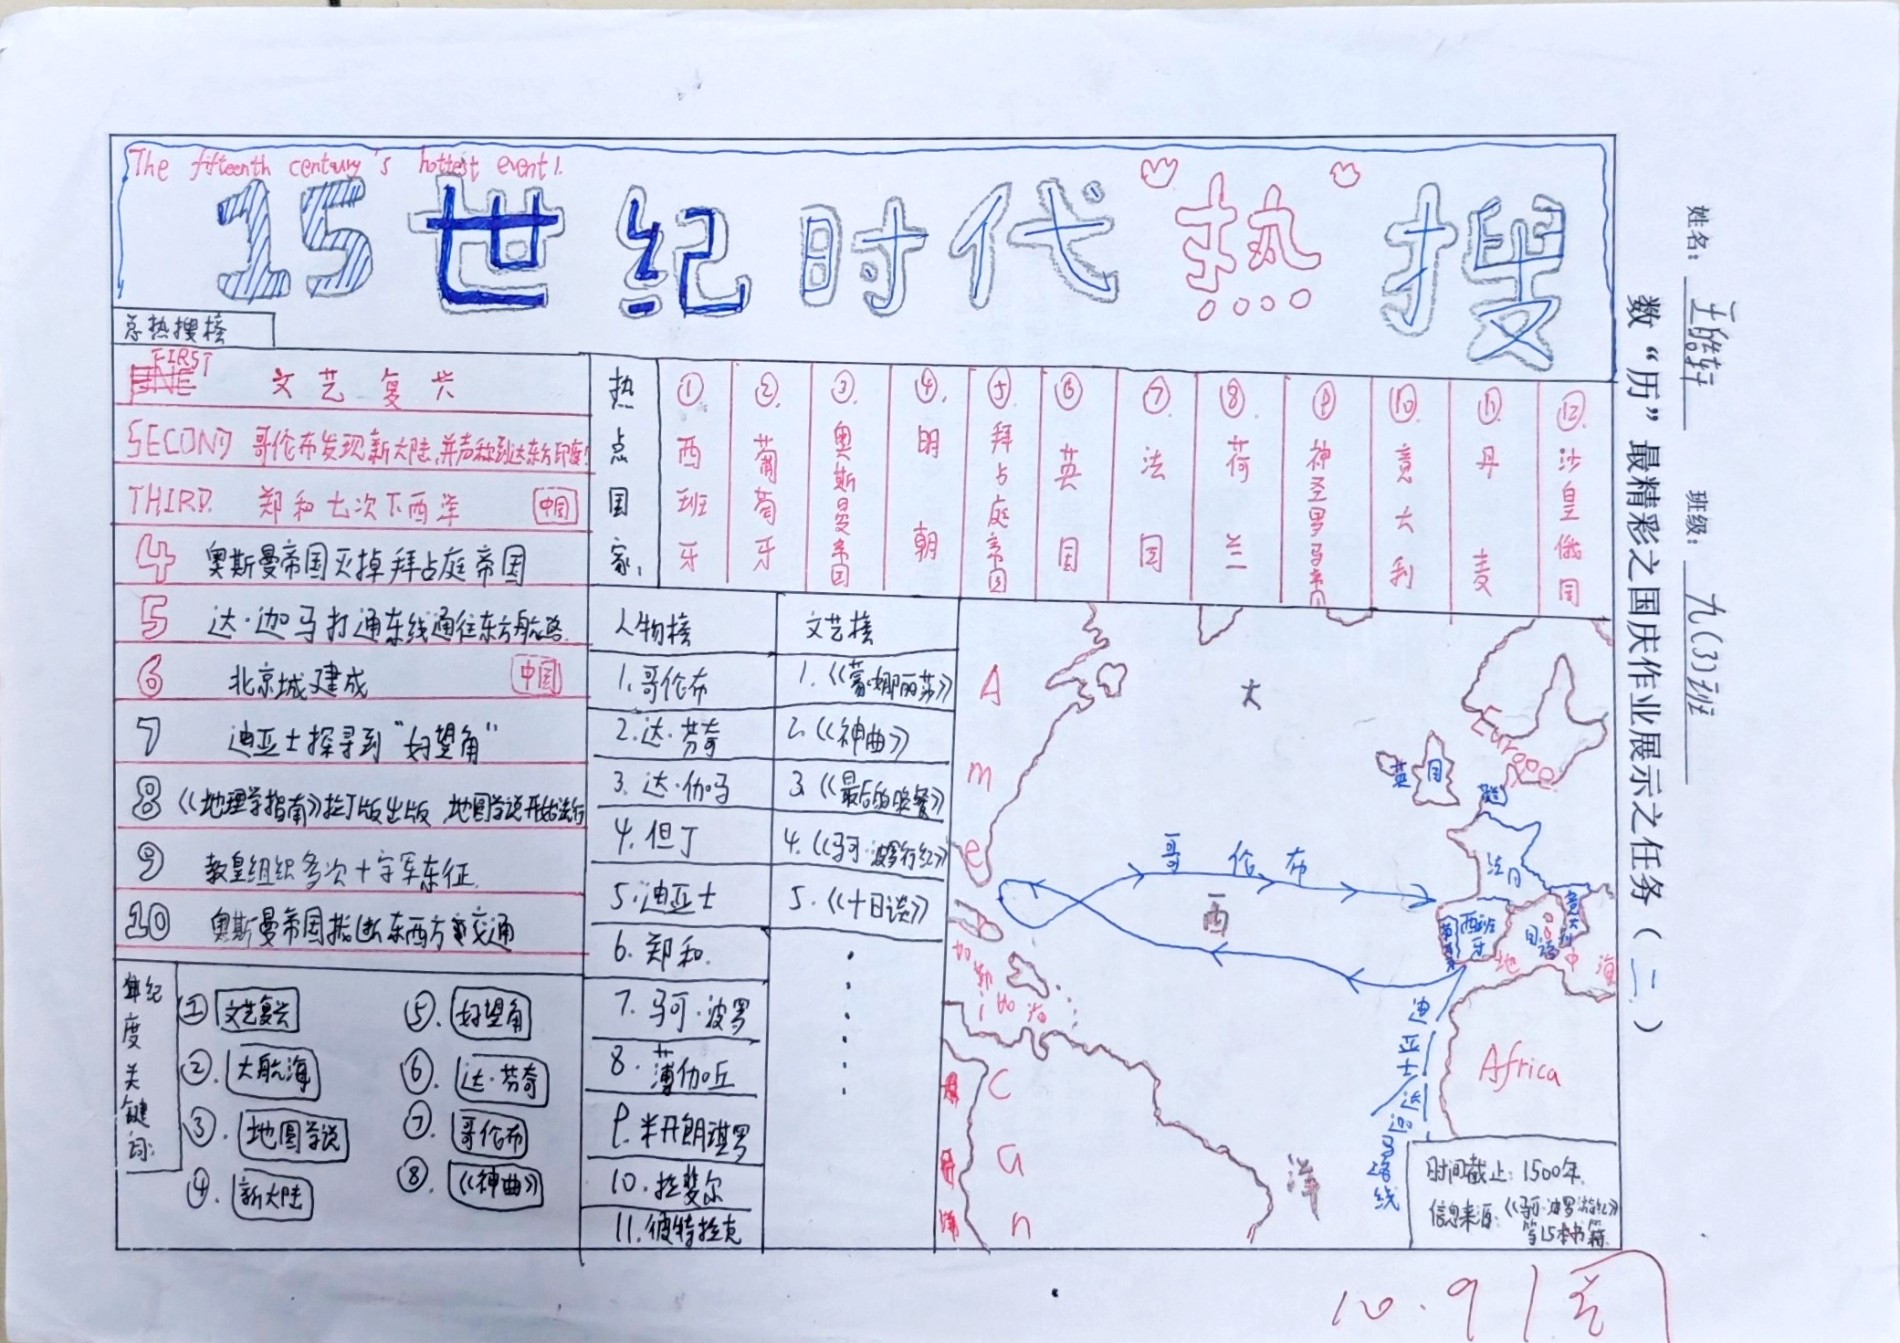 The fifteenth century's hottest event!
15世纪时代热搜
总热搜榜
FIRST 文艺复兴
SECOND 哥伦布发现新大陆,并声称到达东方印度!
THIRD. 郑和七次下西洋 中国
4 奥斯曼帝国灭掉拜占庭帝国
5 达·迦马打通东线通往东方航路.
6 北京城建成 中国
7 迪亚士探寻到“好望角”
8 《地理学指南》拉丁版出版 地圆学说开始流行
9 教皇组织多次十字军东征.
10 奥斯曼帝国掐断东西方交通
年纪度关键词:
① 文艺复兴
②. 大航海
③. 地圆学说
④. 新大陆
⑤. 好望角
⑥. 达·芬奇
⑦. 哥伦布
⑧. 《神曲》
热点国家:
①. 西班牙
②. 葡萄牙
③ 奥斯曼帝国
④. 明朝
⑤ 拜占庭帝国
⑥ 英国
⑦. 法国
⑧ 荷兰
⑨ 神圣罗马帝国
⑩ 意大利
⑪. 丹麦
⑫. 沙皇俄国
人物榜
1.哥伦布
2.达·芬奇
3.达·伽马
4.但丁
5.迪亚士
6.郑和.
7.马可·波罗
8.薄伽丘
9.米开朗琪罗
10.拉斐尔
11.彼特拉克
文艺榜
1.《蒙娜丽莎》
2.《神曲》
3.《最后的晚餐》
4.《马可·波罗行纪》
5.《十日谈》
American
大西洋
Europe
英国
法国
西班牙
葡萄牙
意大利
地中海
哥伦布
加勒比海
Africa
迪亚士
达迦马路线
时间截止:1500年.
信息来源:《马可·波罗游记》
等15本书籍.
姓名: 王皓轩 班级: 九(3)班
数“历”最精彩之国庆作业展示之任务(二)
10.9